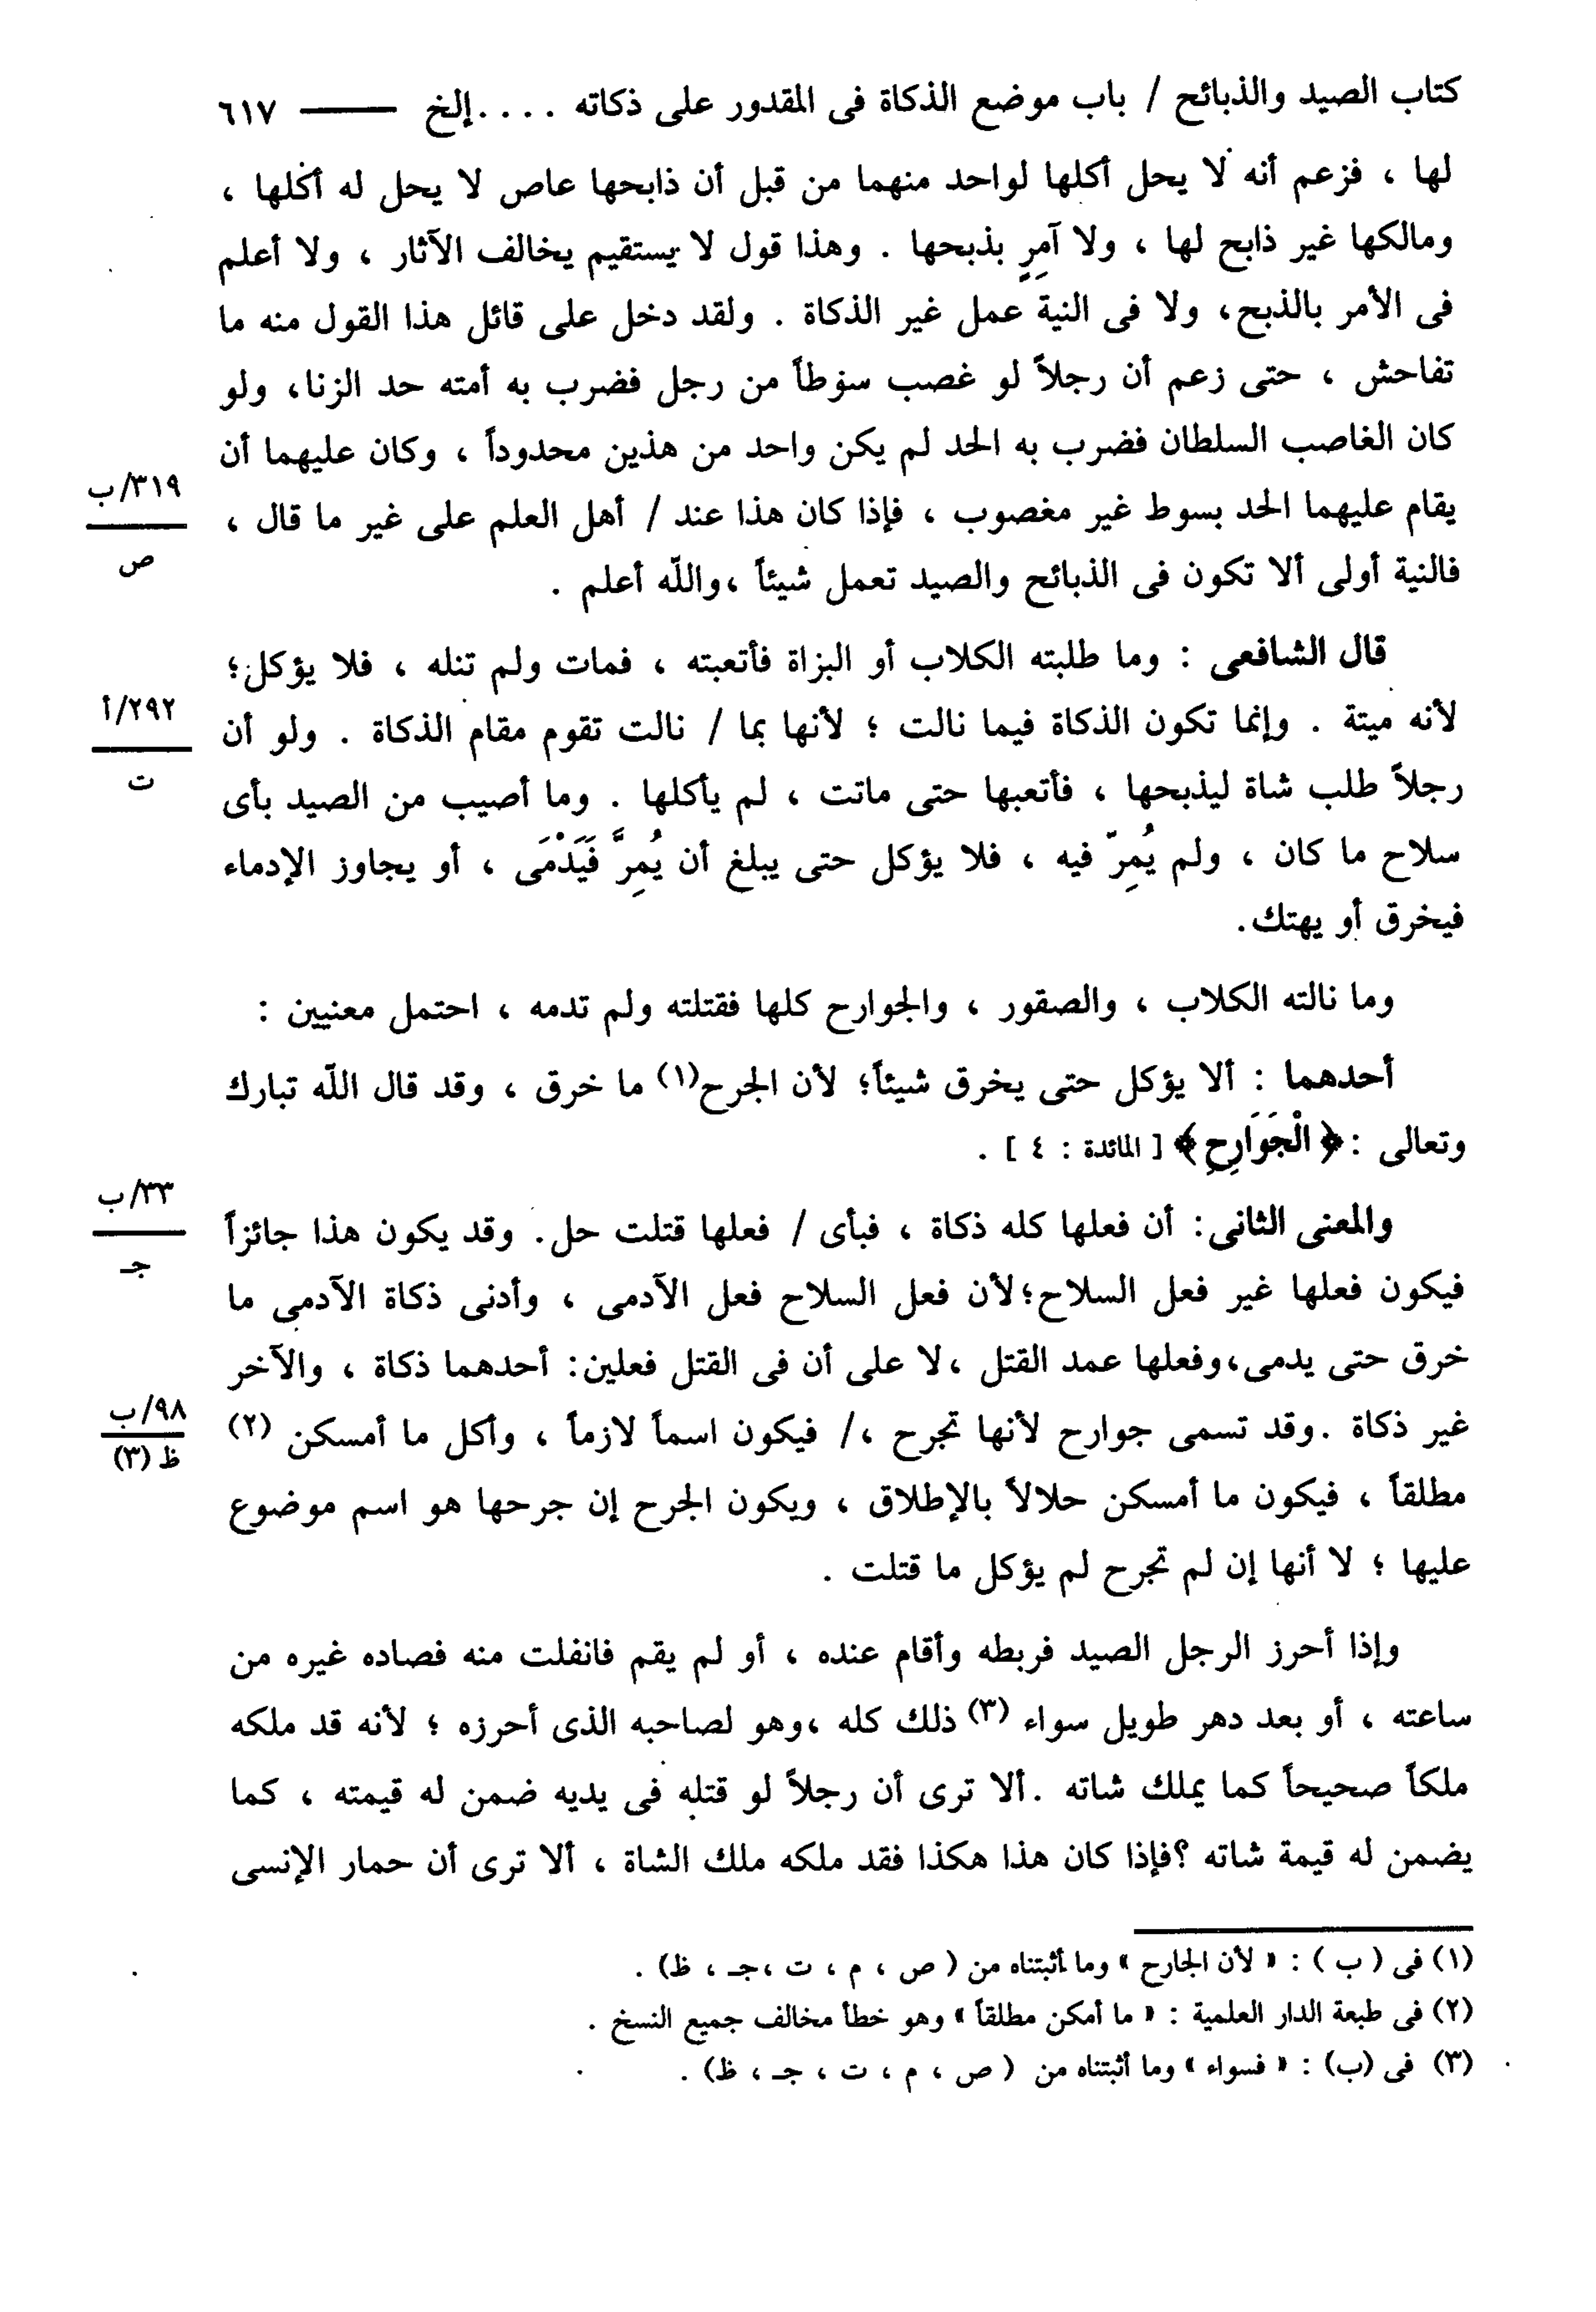 كتاب الصيد والذبائح / باب موضع الذكاة فى المقدور على ذكاته . . . .إلخ ——— ٦١٧
لها ، فزعم أنه لا يحل أكلها لواحد منهما من قبل أن ذابحها عاص لا يحل له أكلها ،
ومالكها غير ذابح لها ، ولا آمِرٍ بذبحها . وهذا قول لا يستقيم يخالف الآثار ، ولا أعلم
فى الأمر بالذبح، ولا فى النية عمل غير الذكاة . ولقد دخل على قائل هذا القول منه ما
تفاحش ، حتى زعم أن رجلاً لو غصب سوطاً من رجل فضرب به أمته حد الزنا، ولو
كان الغاصب السلطان فضرب به الحد لم يكن واحد من هذين محدوداً ، وكان عليهما أن
٣١٩/ب
يقام عليهما الحد بسوط غير مغصوب ، فإذا كان هذا عند / أهل العلم على غير ما قال ،
ص
فالنية أولى ألا تكون فى الذبائح والصيد تعمل شيئاً ،والله أعلم .
قال الشافعى : وما طلبته الكلاب أو البزاة فأتعبته ، فمات ولم تنله ، فلا يؤكل؛
٢٩٢/أ
لأنه ميتة . وإنما تكون الذكاة فيما نالت ؛ لأنها بما / نالت تقوم مقام الذكاة . ولو أن
ت
رجلاً طلب شاة ليذبحها ، فأتعبها حتى ماتت ، لم يأكلها . وما أصيب من الصيد بأى
سلاح ما كان ، ولم يُمِرّ فيه ، فلا يؤكل حتى يبلغ أن يُمِرَّ فَيَدْمَى ، أو يجاوز الإدماء
فيخرق أو يهتك.
وما نالته الكلاب ، والصقور ، والجوارح كلها فقتلته ولم تدمه ، احتمل معنيين :
أحدهما : ألا يؤكل حتى يخرق شيئاً؛ لأن الجرح(١) ما خرق ، وقد قال الله تبارك
وتعالى :﴿ الْجَوَارِحِ ﴾ [ المائدة : ٤ ] .
٣٣/ب
والمعنى الثانى: أن فعلها كله ذكاة ، فبأى / فعلها قتلت حل. وقد يكون هذا جائزاً
جـ
فيكون فعلها غير فعل السلاح؛لأن فعل السلاح فعل الآدمى ، وأدنى ذكاة الآدمى ما
خرق حتى يدمى،وفعلها عمد القتل ،لا على أن فى القتل فعلين: أحدهما ذكاة ، والآخر
٩٨/ب
غير ذكاة .وقد تسمى جوارح لأنها تجرح ،/ فيكون اسماً لازماً ، وأكل ما أمسكن (٢)
ظ (٣)
مطلقاً ، فيكون ما أمسكن حلالاً بالإطلاق ، ويكون الجرح إن جرحها هو اسم موضوع
عليها ؛ لا أنها إن لم تجرح لم يؤكل ما قتلت .
وإذا أحرز الرجل الصيد فربطه وأقام عنده ، أو لم يقم فانفلت منه فصاده غيره من
ساعته ، أو بعد دهر طويل سواء (٣) ذلك كله ،وهو لصاحبه الذى أحرزه ؛ لأنه قد ملكه
ملكاً صحيحاً كما يملك شاته .ألا ترى أن رجلاً لو قتله فى يديه ضمن له قيمته ، كما
يضمن له قيمة شاته ؟فإذا كان هذا هكذا فقد ملكه ملك الشاة ، ألا ترى أن حمار الإنسى
(١) فى ( ب ) : « لأن الجارح » وما أثبتناه من ( ص ، م ، ت ،جـ ، ظ) .
(٢) فى طبعة الدار العلمية : « ما أمكن مطلقاً » وهو خطأ مخالف جميع النسخ .
(٣) فى (ب) : « فسواء » وما أثبتناه من ( ص ، م ، ت ، جـ ، ظ) .